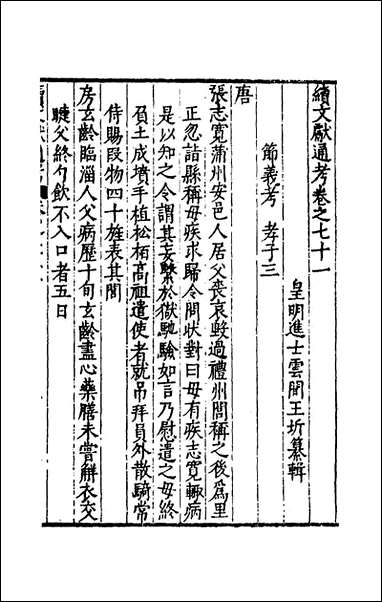 續文獻通考卷之七十一
皇明進士雲間王圻纂輯
節義考　孝子三
唐
張志寛蒲州安邑人居父喪哀毀過禮州閭稱之後爲里
正忽詣縣稱母疾求歸令問狀對曰母有疾志寛輒病
是以知之令謂其妄繫於獄馳驗如言乃慰遣之母終
負土成墳手植松栢高祖遣使者就吊拜員外散騎常
侍賜段物四十旌表其閭
房玄齡臨淄人父病歷十旬玄齡盡心藥膳未嘗解衣交
睫父終勺飲不入口者五日